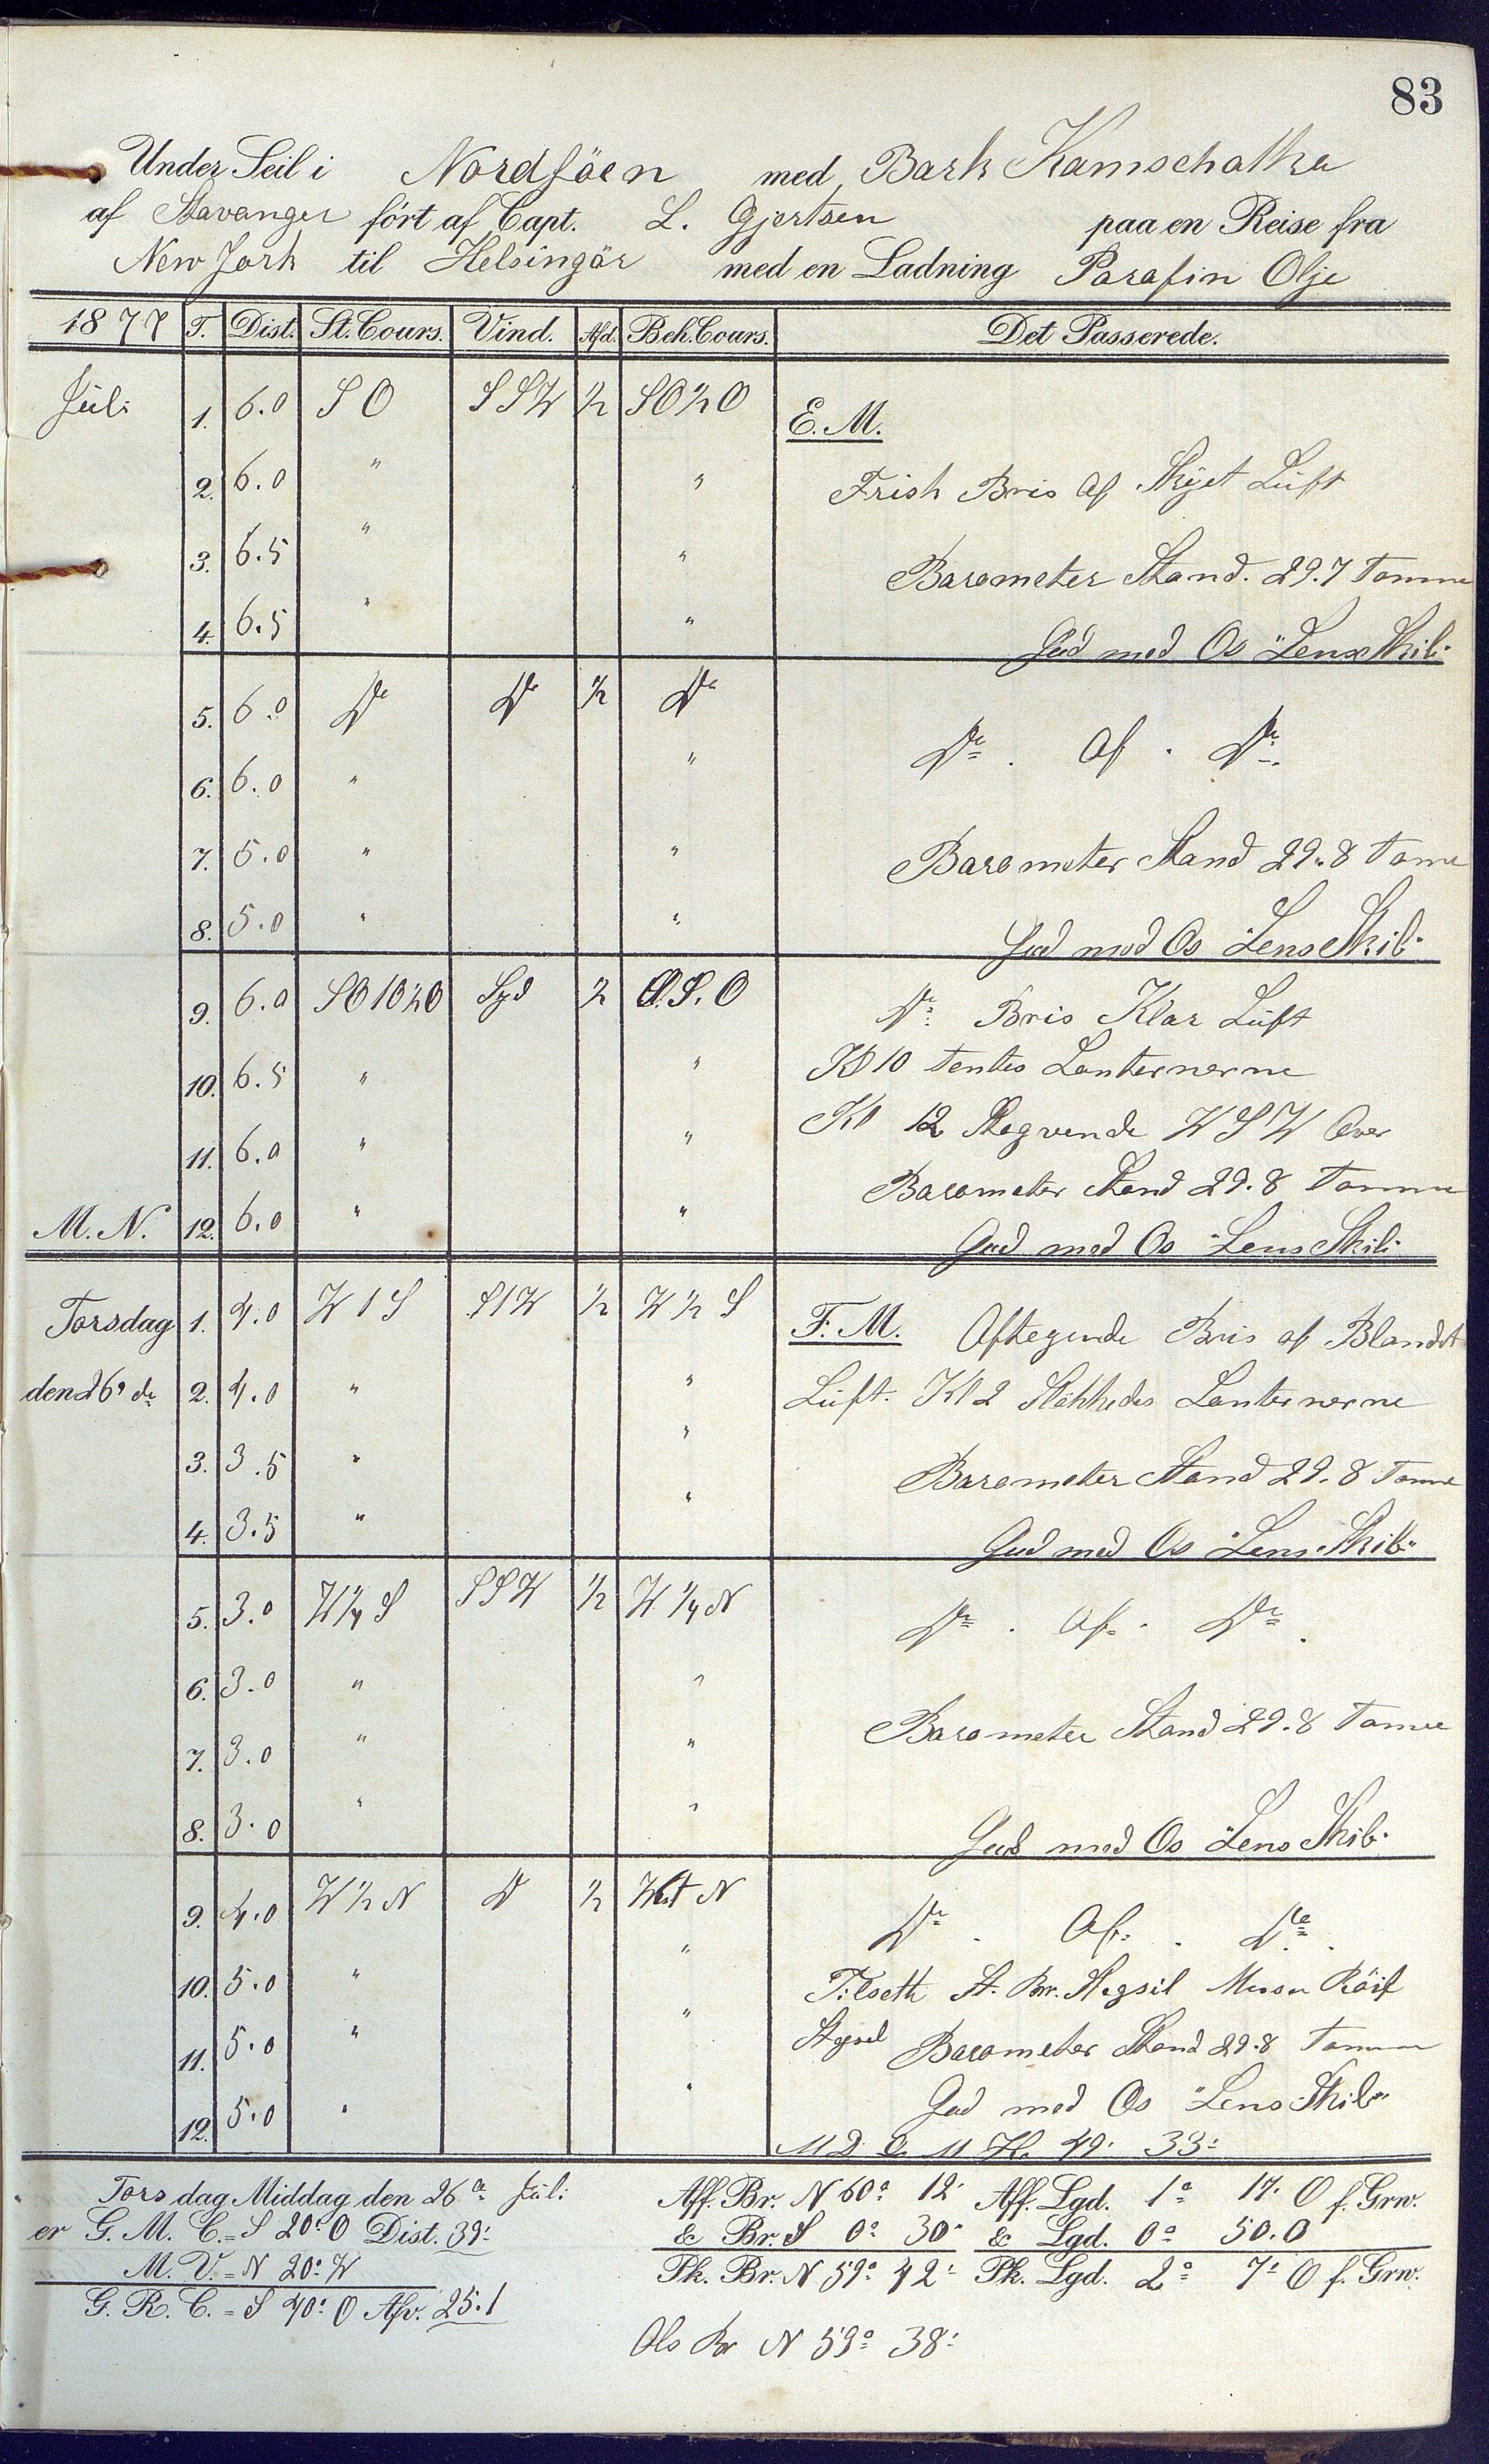 83
Under Seil i Nordsöen med Bark Kamschatka
af Stavanger fört af Capt. L. Gjertsen paa en Reise fra
New Jork til Helsingör med en Ladning Parafin Olje
1877 T. Dist. St. Cours. Vind. Afd. Beh. Cours. Det Passerede.
Juli 1. 6.0 S O S S W ½ S O ½ O E. M.
2. 6.0 " " Frisk Bris af Skyet Lüft
3. 6.5 " " Barometer Stand. 29.7 Tomme
4. 6.5 " " Gud med Os "Lens Skib"
5. 6.0 Do Do ½ Do
6. 6.0 " " Do. Af. Do.
7. 5.0 " " Barometer Stand 29.8 Tome
8. 5.0 " " Gud med Os "Lens Skib"
9. 6.0 S O t O ½ O Syd ½ O. S. O Do Bris Klar Lüft
10. 6.5 " " Kl 10 tentes Lanternerne
11. 6.0 " " Kl 12 Stagvende W S W Over
Barometer Stand 29.8 Tomme
M. N. 12. 6.0 " " Gud med Os "Lens Skib"
Torsdag 1. 4.0 W t S S t W ½ W ½ S F. M. Aftagende Bris af Blandet
den 26de 2. 4.0 " " Lüft. Kl 2 Slökkedes Lanternerne
3. 3.5 " " Barometer Stand 29.8 Tome
4. 3.5 " " Gud med Os "Lens Skib"
5. 3.0 W ¼ S S S W ½ W ¼ N Do. Af. Do.
6. 3.0 " "
7. 3.0 " " Barometer Stand 29.8 Tomme
8. 3.0 " " Gud med Os "Lens Skib"
9. 4.0 W ½ N Do ½ W t N Do. Af. Do.
10. 5.0 " " Tilsette St. Br. Stagsil Mesan Röil
11. 5.0 " " Stagsel Barometer Stand 29.8 Tomme
12. 5.0 " " Gud med Os "Lens Skib"
M D O M H. 49° 33'
Torsdag Middag den 26de Juli Aff. Br. N 60° 12' Aff. Lgd. 1° 17. O f. Grw.
er G. M. C. = S 20° O Dist. 39' & Br. S 0° 30' & Lgd. 0° 50. O
M. V. = N 20° W Pk. Br. N 59° 42' Pk. Lgd. 2° 7' O f. Grw.
G. R. C. = S 40° O Afv. 25.1
Obs Br N 59° 38'